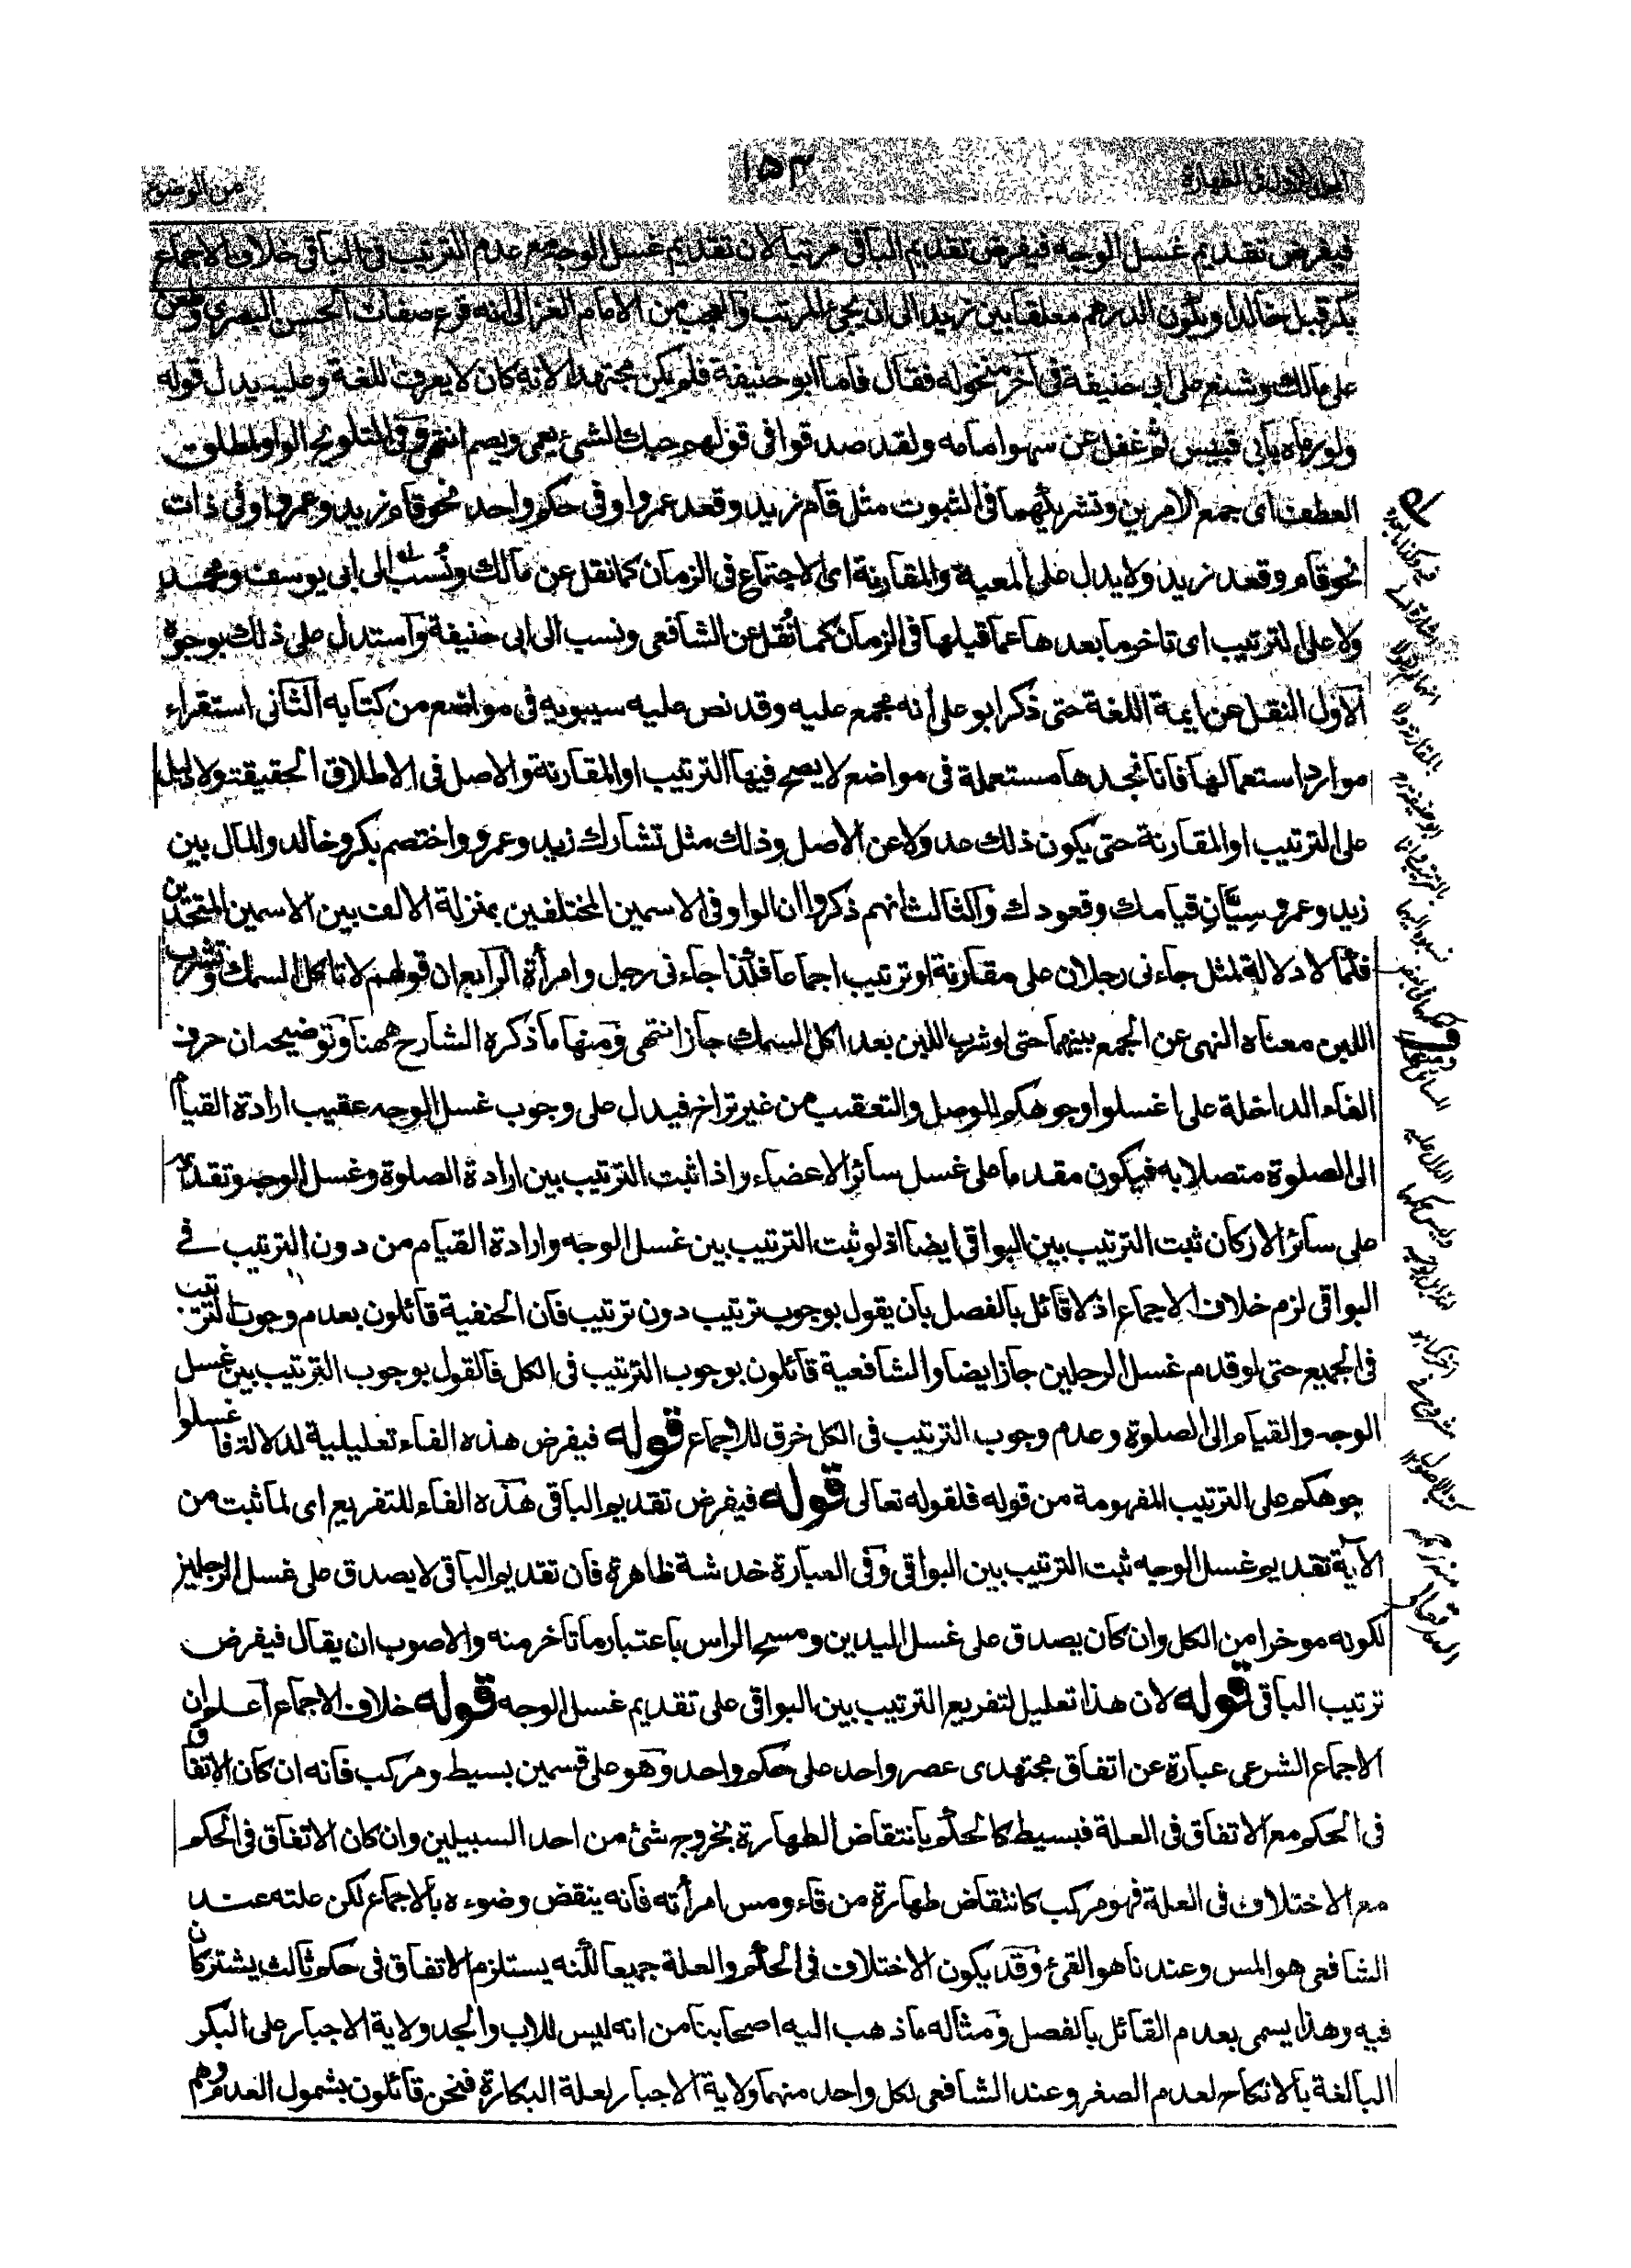 ١٥٣
من الوضوء
فيفرض تقديم غسل الوجه فيفرض تقديم الباقى مرتبا لان تقديم غسل الوجه مع عدم الترتيب فى الباقى خلاف الاجماع
بكر قبل خالد او يكون الدرهم معلقا بين زيد الى ان يجئ المرتب والعجب من الامام الغزالى انه قرع صفات الحسن البصرى وطعن
على مالك وشنع على ابى حنيفة فى آخر منخوله فقال فاما ابو حنيفة فلم يكن مجتهدا لانه كان لا يعرف اللغة وعليه يدل قوله
ولو رماه بابى قبيس ثم غفل عن سهو امامه ولقد صدقوا فى قولهم حبك الشئ يعمى ويصم انتهى وفى التلويح الواو لمطلق
العطف اى جمع الامرين وتشريكهما فى الثبوت مثل قام زيد وقعد عمرو او فى حكم واحد نحو قام زيد وعمرو او فى ذات
نحو قام وقعد زيد ولا يدل على المعية والمقارنة اى الاجتماع فى الزمان كما نقل عن مالك ونُسب الى ابى يوسف ومحمد
ولا على الترتيب اى تاخر ما بعدها عما قبلها فى الزمان كما نُقل عن الشافعى ونسب الى ابى حنيفة واستدل على ذلك بوجوه
الاول النقل عن ايمة اللغة حتى ذكر ابو على انه مجمع عليه وقد نص عليه سيبويه فى مواضع من كتابه الثانى استقراء
موارد استعمالها فانا نجدها مستعملة فى مواضع لا يصح فيها الترتيب او المقارنة والاصل فى الاطلاق الحقيقة ولا دليل
على الترتيب او المقارنة حتى يكون ذلك عدولا عن الاصل وذلك مثل تشارك زيد وعمرو واختصم بكر وخالد والمال بين
زيد وعمرو سِيّانِ قيامك وقعودك والثالث انهم ذكروا ان الواو فى الاسمين المختلفين بمنزلة الالف بين الاسمين المتحدين
فكما لا دلالة لمثل جاءنى رجلان على مقارنة او ترتيب اجماعا فكذا جاءنى رجل وامرأة الرابع ان قولهم لا تاكل السمك وتشرب
اللبن معناه النهى عن الجمع بينهما حتى لو شرب اللبن بعد اكل السمك جاز انتهى ومنها ما ذكره الشارح ههنا وتوضيحه ان حرف
الفاء الداخلة على اغسلوا وجوهكم للوصل والتعقيب من غير تراخ فيدل على وجوب غسل الوجه عقيب ارادة القيام
الى الصلوة متصلا به فيكون مقدما على غسل سائر الاعضاء واذا ثبت الترتيب بين ارادة الصلوة وغسل الوجه وتقدمه
على سائر الاركان ثبت الترتيب بين البواقى ايضا اذ لو ثبت الترتيب بين غسل الوجه وارادة القيام من دون الترتيب فى
البواقى لزم خلاف الاجماع اذ لا قائل بالفصل بان يقول بوجوب ترتيب دون ترتيب فان الحنفية قائلون بعدم وجوب الترتيب
فى الجميع حتى لو قدم غسل الرجلين جاز ايضا والشافعية قائلون بوجوب الترتيب فى الكل فالقول بوجوب الترتيب بين غسل
الوجه والقيام الى الصلوة وعدم وجوب الترتيب فى الكل خرق للاجماع قوله فيفرض هذه الفاء تعليلية لدلالة فاغسلوا
جوهكم على الترتيب المفهومة من قوله فلقوله تعالى قوله فيفرض تقديم الباقى هذه الفاء للتفريع اى لما ثبت من
الآية تقديم غسل الوجه ثبت الترتيب بين البواقى وفى العبارة خدشة ظاهرة فان تقديم الباقى لا يصدق على غسل الرجلين
لكونه موخرا من الكل وان كان يصدق على غسل اليدين ومسح الراس باعتبار ما تأخر منه والاصوب ان يقال فيفرض
ترتيب الباقى قوله لان هذا تعليل لتفريع الترتيب بين البواقى على تقديم غسل الوجه قوله خلاف الاجماع اعلم ان
الاجماع الشرعى عبارة عن اتفاق مجتهدى عصر واحد على حكم واحد وهو على قسمين بسيط ومركب فانه ان كان الاتفاق
فى الحكم مع الاتفاق فى العلة فبسيط كالحكم بانتقاض الطهارة بخروج شئ من احد السبيلين وان كان الاتفاق فى الحكم
مع الاختلاف فى العلة فهو مركب كانتقاض طهارة من قاء ومس امرأته فانه ينقض وضوءه بالاجماع لكن علته عند
الشافعى هو المس وعندنا هو القئ وقد يكون الاختلاف فى الحكم والعلة جميعا لكنه يستلزم الاتفاق فى حكم ثالث يشتركان
فيه وهذا يسمى بعدم القائل بالفصل ومثاله ما ذهب اليه اصحابنا من انه ليس للاب والجد ولاية الاجبار على البكر
البالغة بالانكاح لعدم الصغر وعند الشافعى لكل واحد منهما ولاية الاجبار لعلة البكارة فنحن قائلون بشمول العدم وهم